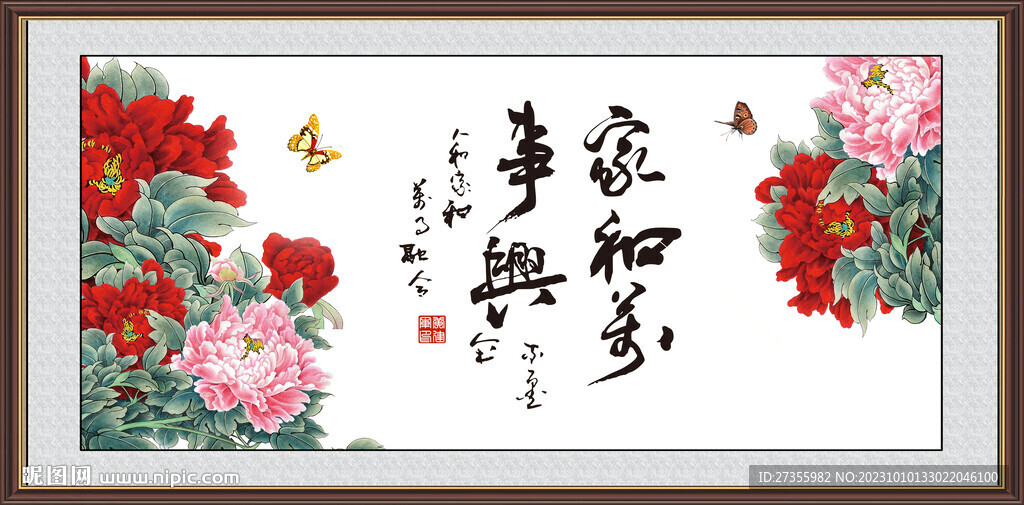 家和萬
事興
人和家和
萬事融合
昵图网 www.nipic.com
ID:27355982 NO:20231010133022046100